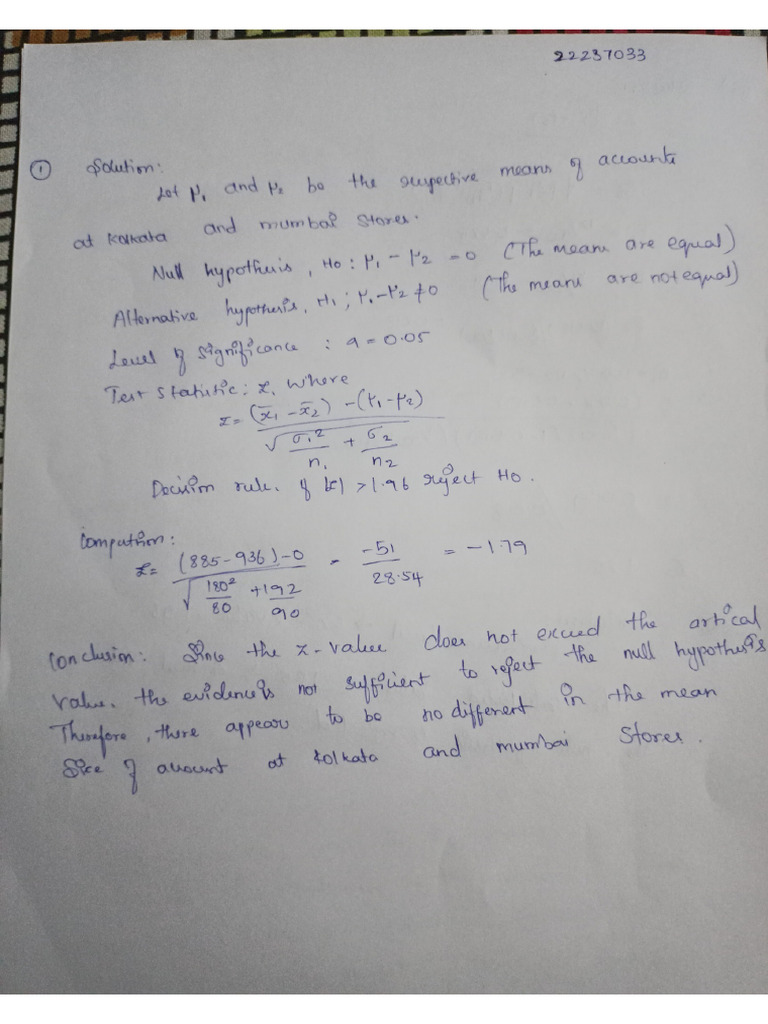 22237033
① Solution:
Let μ₁ and μ₂ be the respective means of accounts
at Kolkata and mumbai Stores.
Null hypothesis, Ho: μ₁ - μ₂ = 0 (The means are equal)
Alternative hypothesis, H₁; μ₁-μ₂≠0 (The means are not equal)
Level of Significance : a = 0.05
Test Statistic: z, where
z = (x̄₁ - x̄₂) - (μ₁ - μ₂) / √(σ₁²/n₁ + σ₂/n₂)
Decision rule. If |z| > 1.96 reject Ho.
Computation:
z = (885-936)-0 / √(180²/80 + 192/90) = -51/28.54 = -1.79
Conclusion: Since the z-value does not exceed the critical
value. the evidence is not sufficient to reject the null hypothesis
Therefore, there appears to be no different in the mean
Size of account at Kolkata and mumbai Stores.